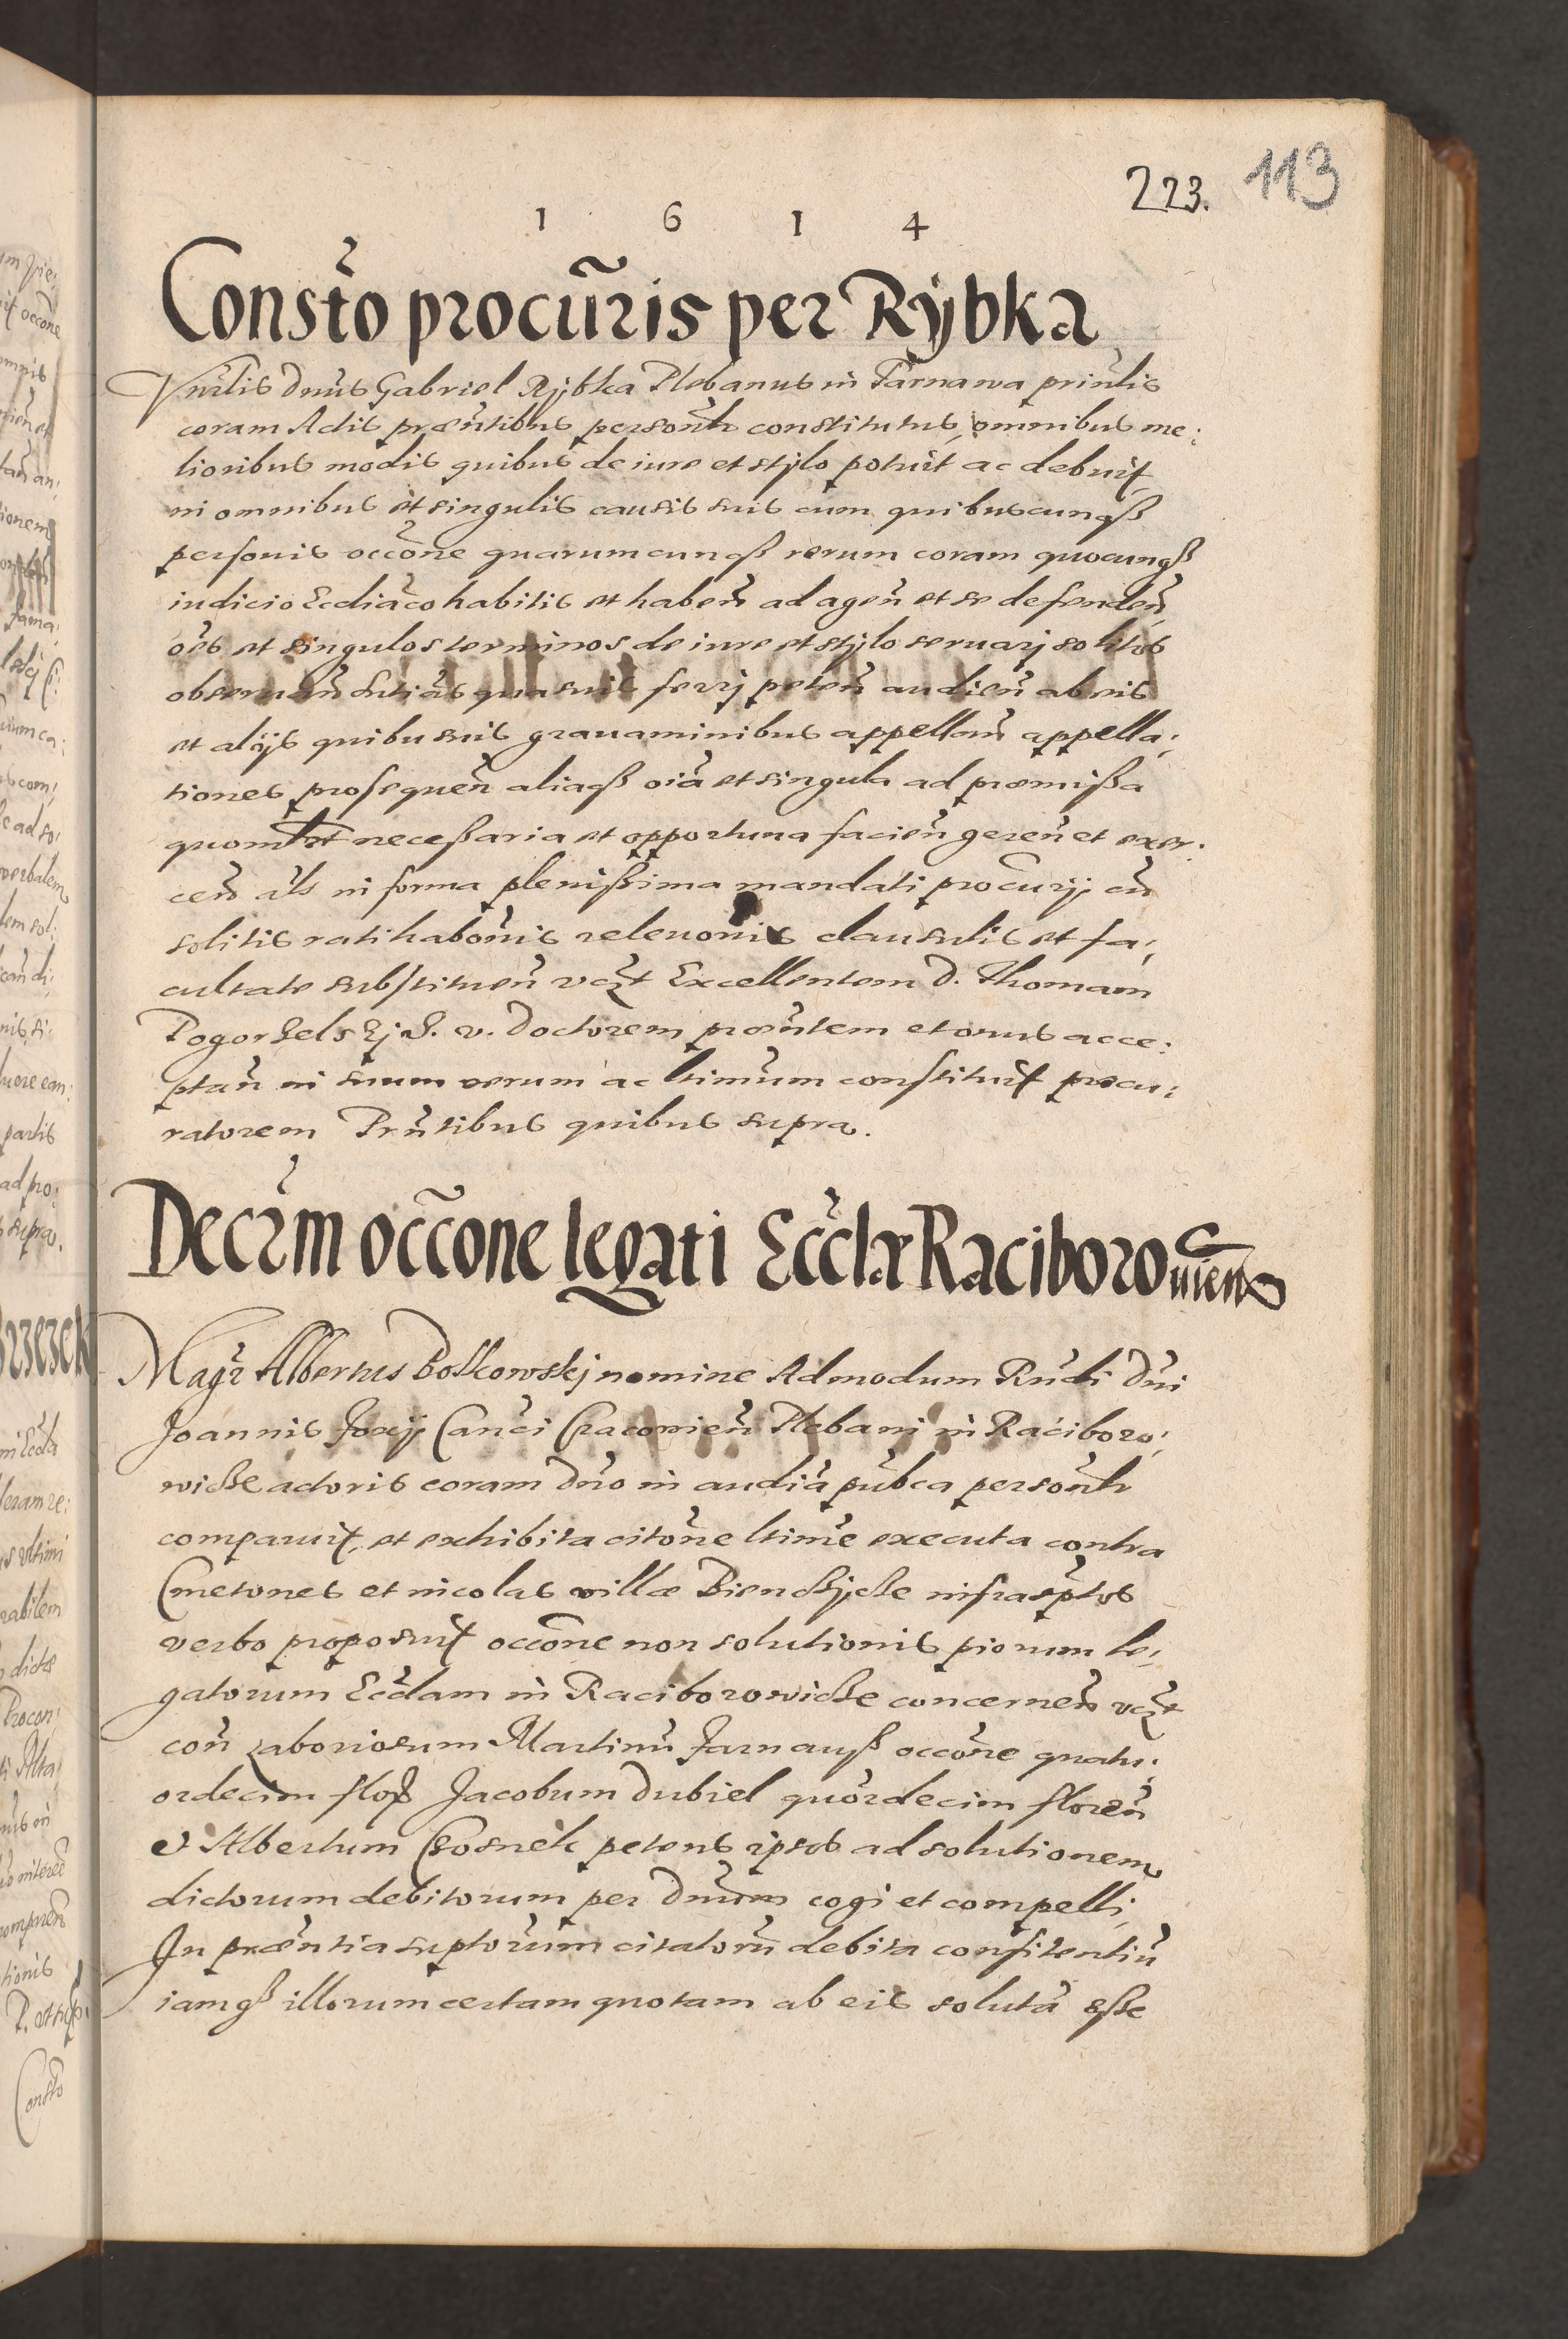 223. 113
1 6 1 4
Consto procuris per Rÿbka
Vnrlis dnus Gabriel Rÿbka Plebanus in Tarnawa prinlis
coram Actis præntibus personlr constitutus, omnibus me:
lioribus modis quibus de iure et stÿlo potuit ac debuit
in omnibus et singulis causis suis cum quibuscunqß
personis occone quarumcunqß rerum coram quocunqß
iudicio Ecclíaco habitis et haben ad agen et se defenden
oes et singulos terminos de iure et stÿlo seruarj solitos
obseruan sntias quasuis ferrj peten audien ab eis
et alijs quibusuis grauaminibus appellan appella:
tiones prosequen aliaqß oia et singula ad præmißa
quomlt neceßaria et opportuna facien geren et exer:
cen als in forma plenißima mandati procurij, cu
solitis ratihabonis releuonis clausulis et fa:
cultate substituen vczt Excellentem D. Thomam
Pogorzelskj J. V. Doctorem præntem et onus acce:
ptan in suum verum ac ltimum constituit procu:
ratorem Prntibus quibus supra.
Decrm occone legati Eccla Raciborouien
Magr Albertus Boskowskj nomine Admodum Rndi Dni
Joannis Foxij Canci Cracouien Plebani in Raciboro:
wicze actoris coram Dno in audia pubca personlr
comparuit, et exhibita citone ltime executa contra
Cmetones et incolas villæ Bienczÿcze infrascptos
verbo proposuit occone non solutionis piorum le:
gatorum Ecclam in Raciborowicze concernen vczt
con Laboriosum Martinu Jarnauß occone quatu:
ordecim floß Jacobum Dubiel quordecim floren
et Albertum Czosnek petens ipsos ad solutionem
dictorum debitorum per Dnum cogi et compelli,
In præntia suptorum citatoru debita confitentiu
iamqß illorum certam quotam ab eis soluta eße